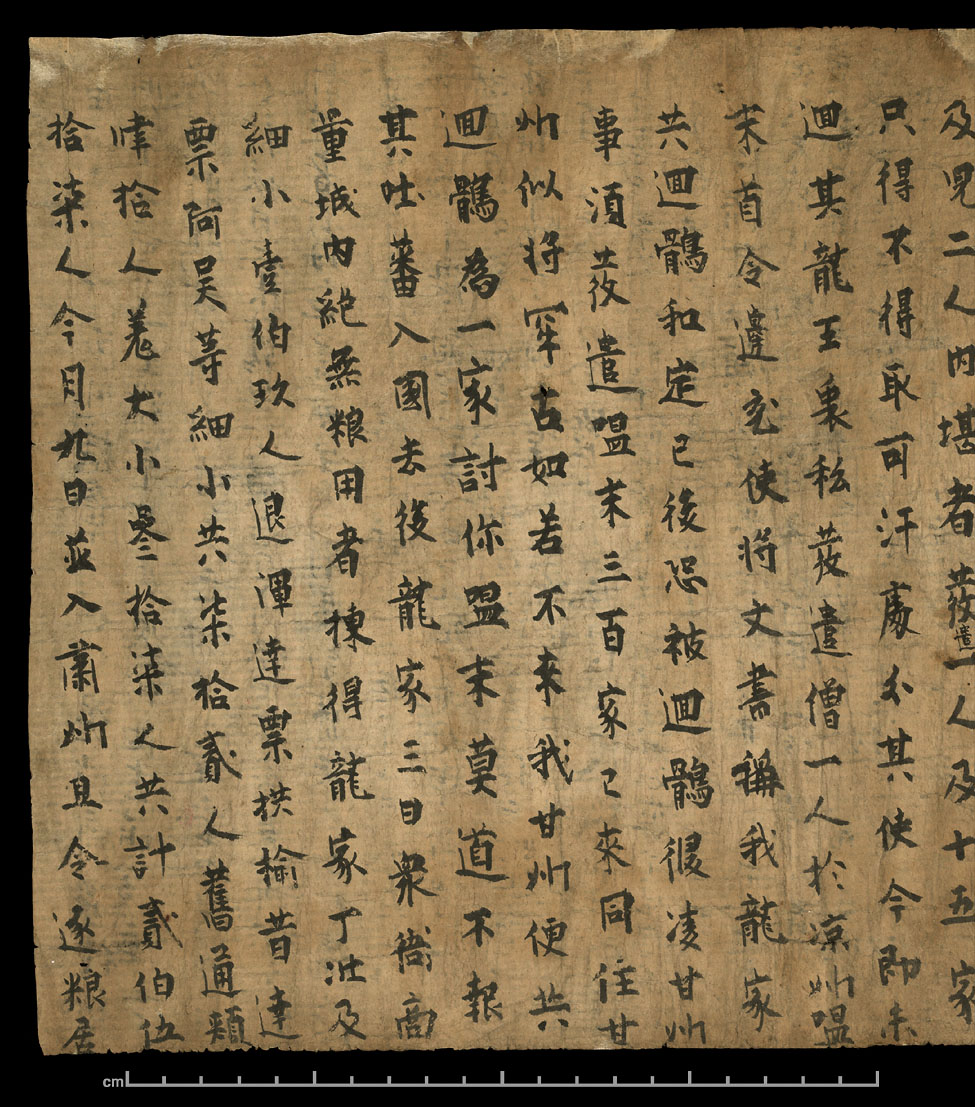 及兒二人內堪者發遣一人及十五家
只得不得取可汗處分其使今即未
迴其龍王裏私發遣僧一人於凉州嗢
末首令邊充使將文書稱我龍家
共迴鶻和定已後恐被迴鶻侵凌甘州
事須發遣嗢末三百家已來同住甘
州似將牢古如若不來我甘州便共
迴鶻為一家討你嗢末莫道不報
其吐蕃入國去後龍家三日衆衙商
量城內絕無粮用者揀得龍家丁壯及
細小壹伯玖人退渾達票拱榆昔達
票阿吳等細小共柒拾貳人舊通頰
肆拾人羌大小叄拾柒人共計貳伯伍
拾柒人今月九日並入肅州且令逐粮居